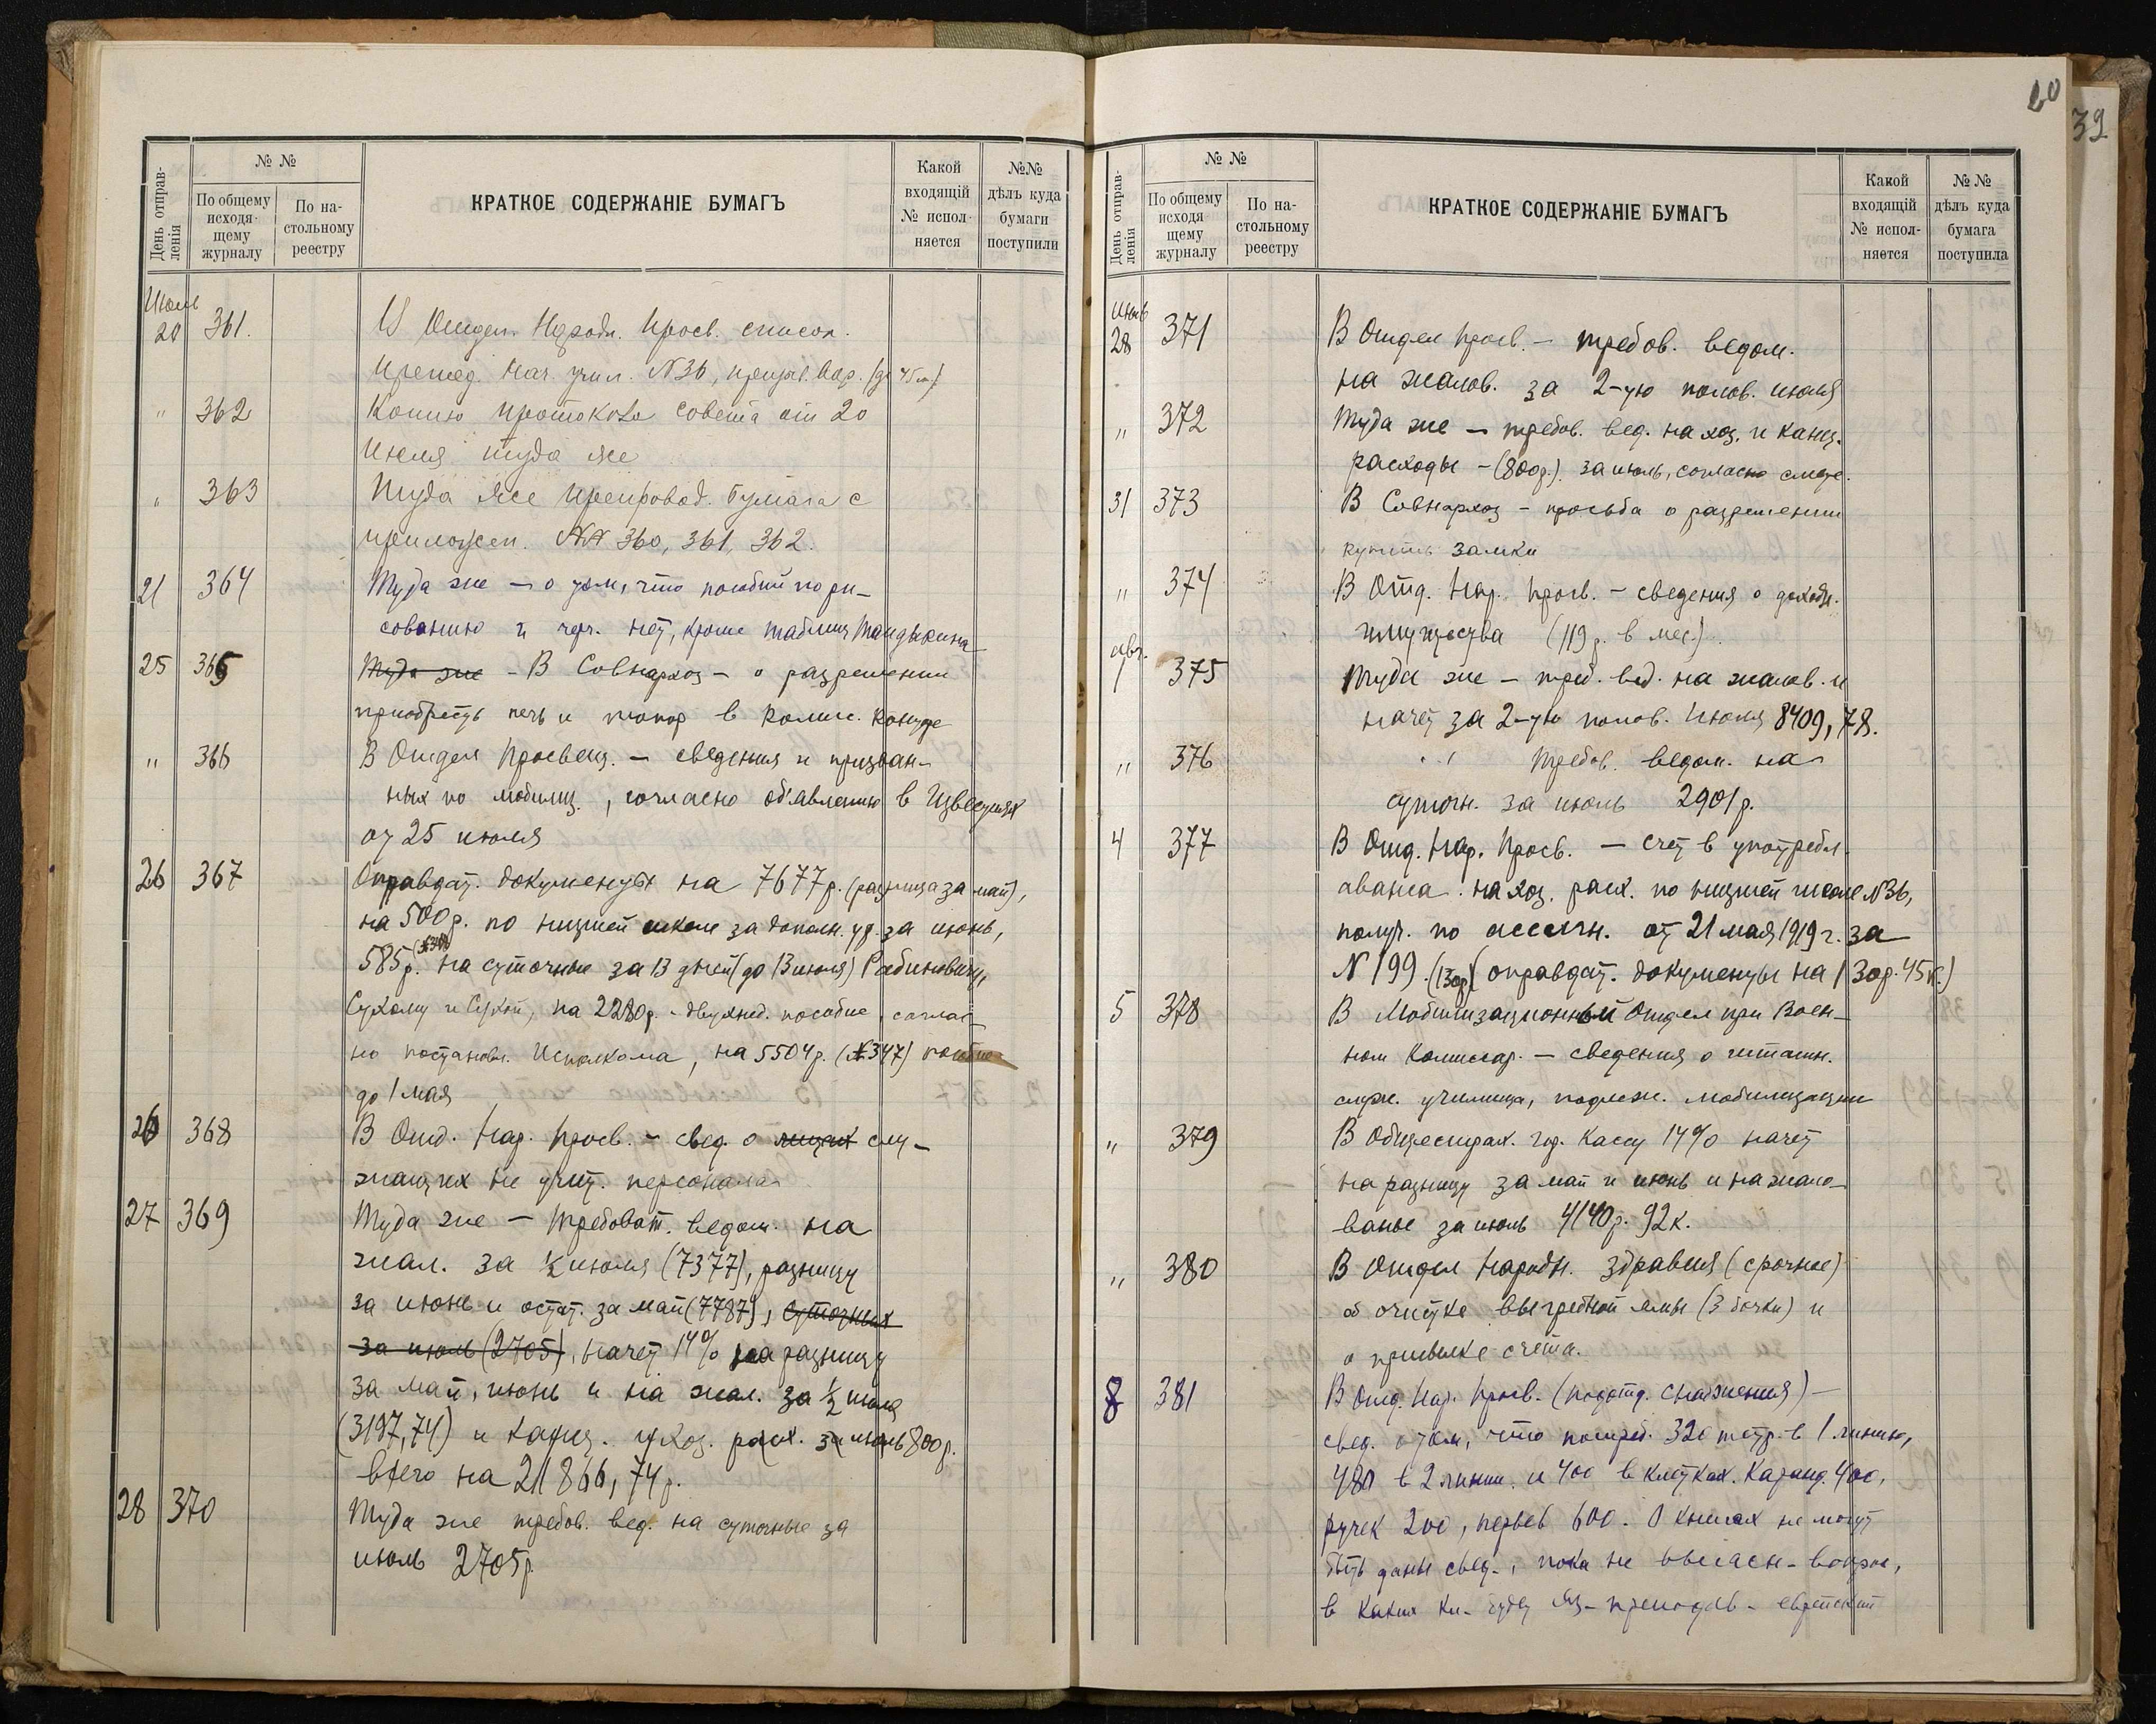 60
39
День отправ-
ленія
№ №
По общему
исходя-
щему
журналу
По на-
стольному
реестру
КРАТКОЕ СОДЕРЖАНІЕ БУМАГЪ
Какой
входящій
№ испол-
няется
№№
дѣлъ куда
бумаги
поступили
Июль
20 361. В Отдел. Народн. Просв. список.
Нач. учил. N 36,
" 362 Копию протокола совета от 20
Июля туда же
" 363 Туда же препровод. бумага с
приложен. NN 360, 361, 362.
21 364 Туда же — о том, что пособий по ри-
сованию и черч. нет, кроме таблиц
25 365 Туда же - В Совнархоз - о разрешении
приобресть печь и топор в комис. конторе
" 366 В Отдел Просвещ. — сведения и призван-
ных по мобилиз., согласно об'явлению в Известиях
от 25 июля
26 367 Оправдат. документы на 7677 р. (разница за май),
на 500 р. по низшей школе за дополн. уд. за июнь,
585 р. на суточные за 13 дней (до 13 июля) Рабиновичу,
Сухому и Сухой, на 2280 р. - двухнед. пособие, соглас-
но постановл. Исполкома, на 5504 р. (№ 347) пособие
до 1 мая
26 368 В Отд. Нар. Просв. — свед. о лицах слу-
жащих не учит. персонала
27 369 Туда же — требоват. ведом. на
жал. за ½ июля (7377), разницу
за июнь и остат. за май (7787), суточных
за июль (2705), начет 14% на разницу
за май, июнь и на жал. за ½ июля
(3197,74) и канц. и хоз. расх. за июль 800 р.
всего на 21866,74 р.
28 370 Туда же требов. вед. на суточные за
июль 2705 р.
День отправ-
ленія
№ №
По общему
исходя
щему
журналу
По на-
стольному
реестру
КРАТКОЕ СОДЕРЖАНІЕ БУМАГЪ
Какой
входящій
№ испол-
няется
№ №
дѣлъ куда
бумага
поступила
июль
28 371 В Отдел Просв. — требов. ведом.
на жалов. за 2-ую полов. июля
" 372 Туда же — требов. вед. на хоз. и канц.
расходы - (800 р.) за июль, согласно смете.
31 373 В Совнархоз - просьба о разрешении
купить замки
" 374 В Отд. Нар. Просв. — сведения о доходн.
имущества (119 р. в мес.)
авг.
1 375 Туда же — треб. вед. на жалов. и
начет за 2-ую полов. Июля 8409,78.
" 376 " Требов. ведом. на
суточн. за июль 2901 р.
4 377 В Отд. Нар. Просв. — счет в употребл.
аванса на хоз. расх. по низшей школе N 36,
получ. по ассигн. от 21 мая 1919 г. за
N 199. (130р) (оправдат. документы на 130 р. 45 к.)
5 378 В Мобилизационный Отдел при Воен-
ном Комиссар. — сведения о
служ. училища, подлеж. мобилизации
" 379 В Общестрах. гор. Кассу 14% начет
на разницу за май и июнь и на жало-
ванье за июль 4140 р. 92 к.
" 380 В Отдел Народн. здравия (срочное)
об очистке выгребной ямы (3 бочки) и
о присылке счета.
8 381 В Отд. Нар. Просв. (подотд. снабжения) —
свед. о том, что потреб. 320 тетр. в 1 линию,
480 в 2 линии и 400 в клетках. Каранд. 400,
ручек 200, перьев 600. О книгах не могут
быть даны свед., пока не выяснен- вопрос,
в каких кл- будет яз- преподав- еврейский